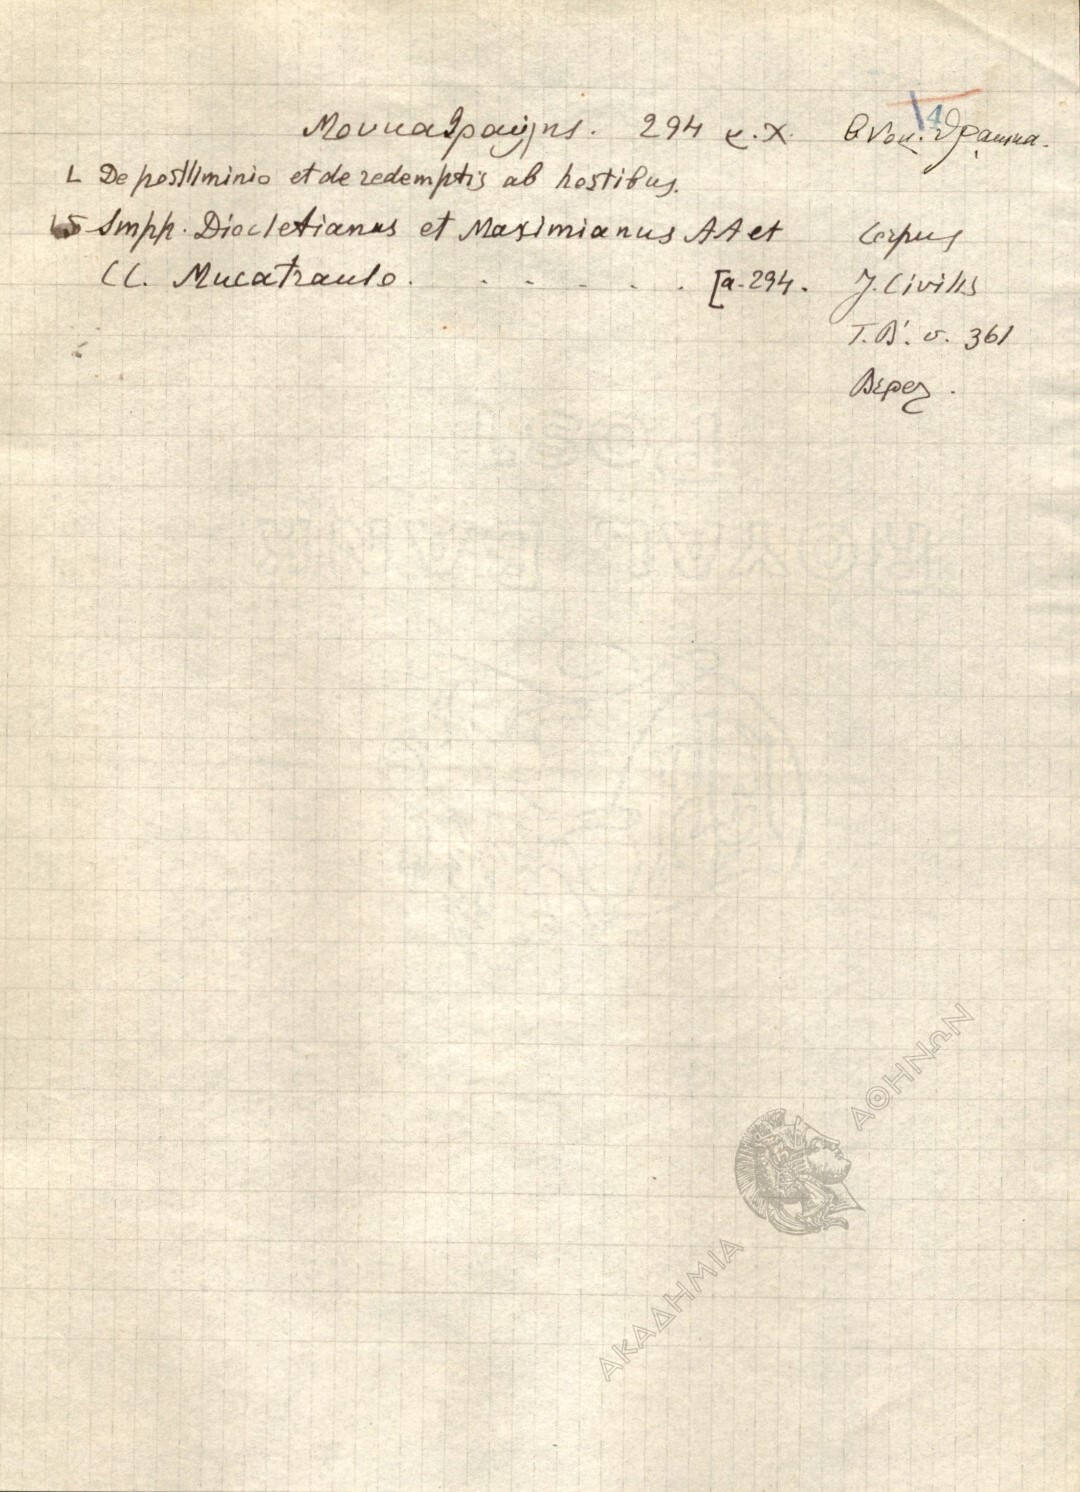 Μουκαθραύλης. 294 μ.Χ.
14
Θρακικα.
L De postliminio et de redemptis ab hostibus.
Impp. Diocletianus et Maximianus AA et
CC. Mucatraulo. . . . . . . [a. 294.
Corpus
J. Civilis
Τ. Β'. σ. 361
Βερολ.
ΑΚΑΔΗΜΙΑ ΑΘΗΝΩΝ